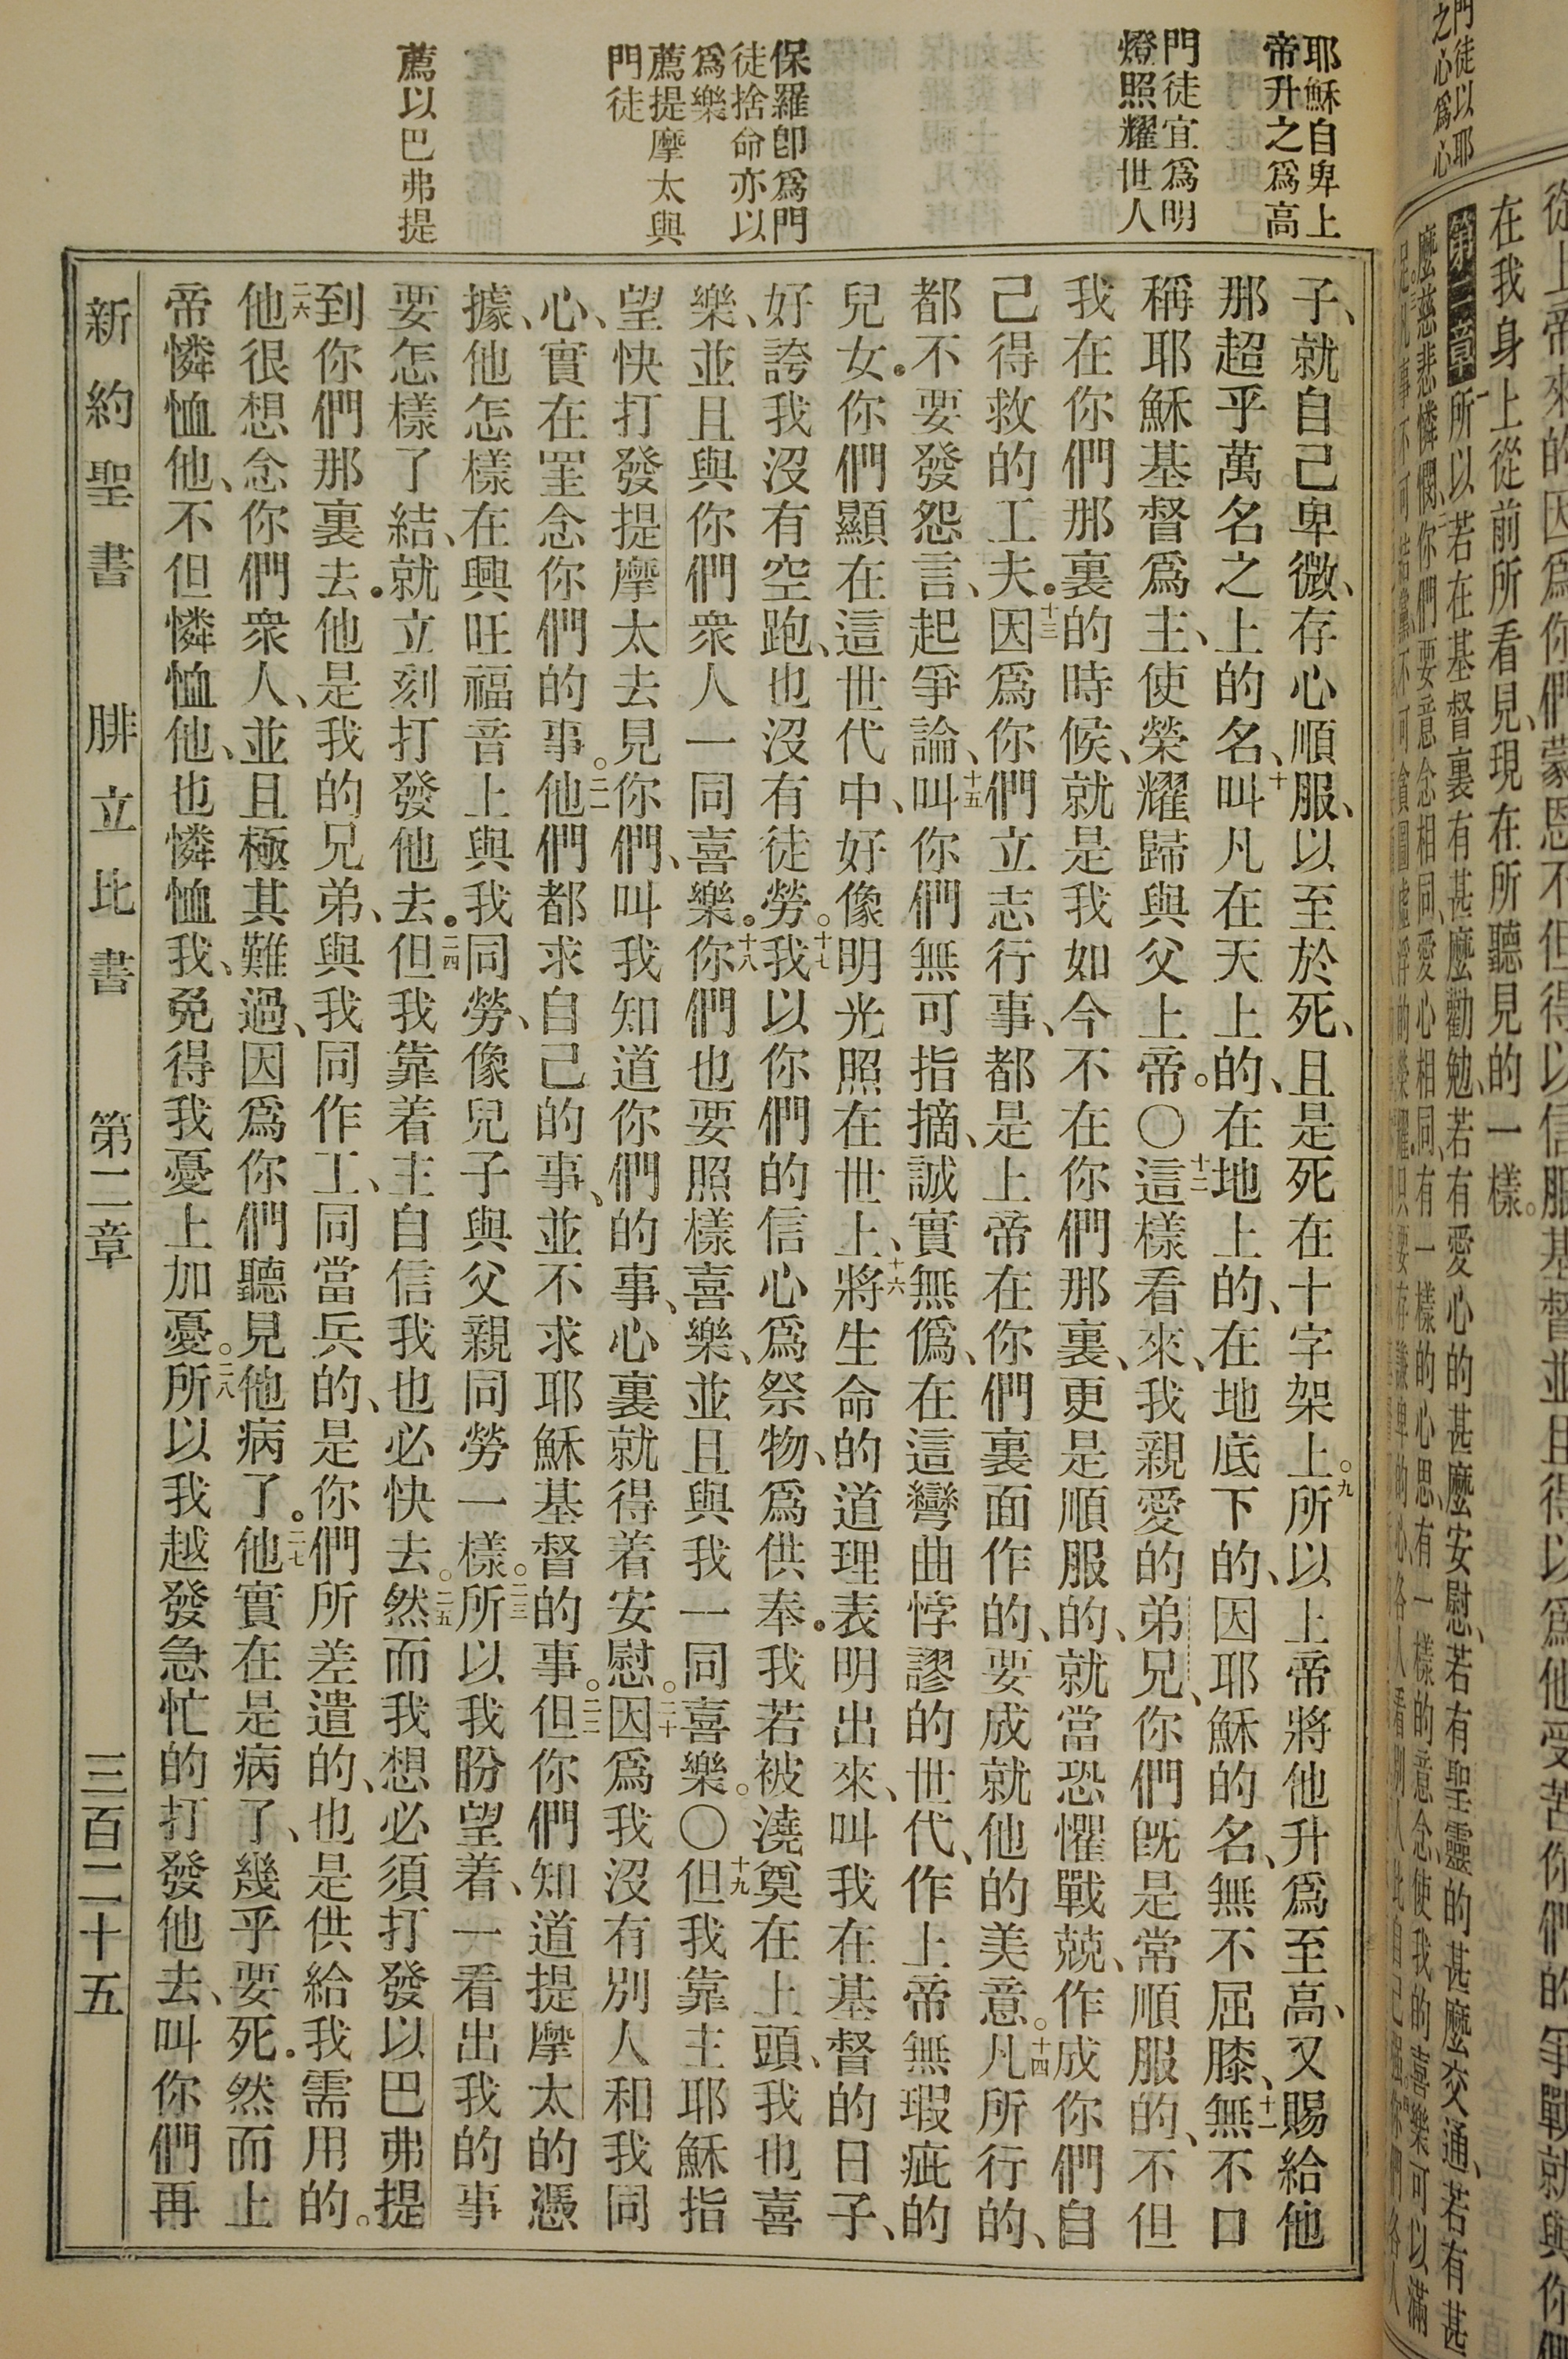 在我身上從前所看見、現在所聽見的一樣。
耶穌自卑上
帝升之爲高
門徒宜爲明
燈照耀世人
保羅卽爲門
徒捨命亦以
爲樂
薦提摩太與
門徒
薦以巴弗提
子、就自己卑微、存心順服、以至於死、且是死在十字架上。九所以上帝將他升爲至高、又賜給他
那超乎萬名之上的名、十叫凡在天上的、在地上的、在地底下的、因耶穌的名、無不屈膝、十一無不口
稱耶穌基督爲主、使榮耀歸與父上帝。〇十二這樣看來、我親愛的弟兄、你們旣是常順服的、不但
我在你們那裏的時候、就是我如今不在你們那裏、更是順服的、就當恐懼戰兢、作成你們自
己得救的工夫。十三因爲你們立志行事、都是上帝在你們裏面作的、要成就他的美意。十四凡所行的、
都不要發怨言、起爭論、十五叫你們無可指摘、誠實無僞、在這彎曲悖謬的世代、作上帝無瑕疵的
兒女。你們顯在這世代中、好像明光照在世上、十六將生命的道理表明出來、叫我在基督的日子、
好誇我沒有空跑、也沒有徒勞。十七我以你們的信心爲祭物、爲供奉。我若被澆奠在上頭、我也喜
樂、並且與你們衆人一同喜樂。十八你們也要照樣喜樂、並且與我一同喜樂。〇十九但我靠主耶穌指
望快打發提摩太去見你們、叫我知道你們的事、心裏就得着安慰。二十因爲我沒有別人和我同
心、實在罣念你們的事。二一他們都求自己的事、並不求耶穌基督的事。二二但你們知道提摩太的憑
據、他怎樣在興旺福音上與我同勞、像兒子與父親同勞一樣。二三所以我盼望着、一看出我的事
要怎樣了結、就立刻打發他去。二四但我靠着主自信我也必快去。二五然而我想必須打發以巴弗提
到你們那裏去。他是我的兄弟、與我同作工、同當兵的、是你們所差遣的、也是供給我需用的。
二六他很想念你們衆人、並且極其難過、因爲你們聽見他病了。二七他實在是病了、幾乎要死。然而上
帝憐恤他、不但憐恤他、也憐恤我、免得我憂上加憂。二八所以我越發急忙的打發他去、叫你們再
新約聖書 腓立比書 第二章 三百二十五